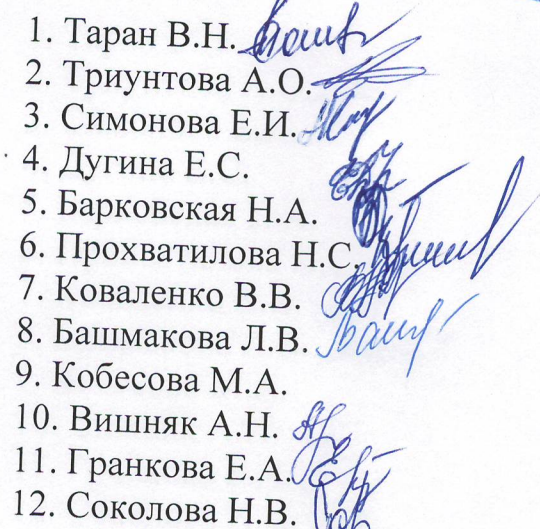 1. Таран В.Н.
2. Триунтова А.О.
3. Симонова Е.И.
4. Дугина Е.С.
5. Барковская Н.А.
6. Прохватилова Н.С.
7. Коваленко В.В.
8. Башмакова Л.В.
9. Кобесова М.А.
10. Вишняк А.Н.
11. Гранкова Е.А.
12. Соколова Н.В.